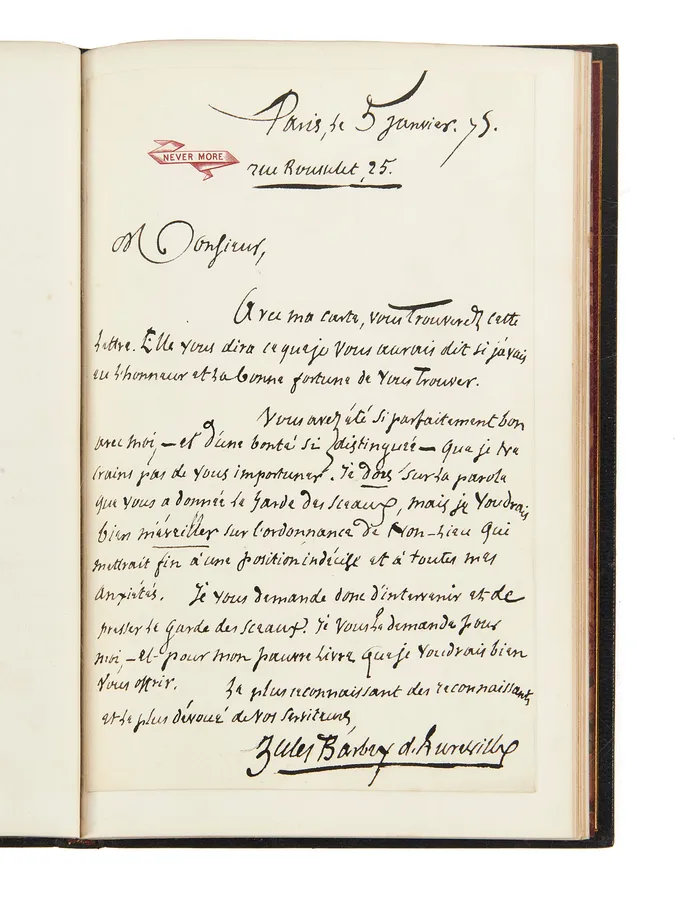 Paris, le 5 Janvier. 75.
NEVER MORE
rue Rousselet, 25.
Monsieur,
Avec ma carte, vous trouverez cette
Lettre. Elle vous dira ce que je vous aurais dit si j'avais
eu l'honneur et la bonne fortune de vous trouver.
Vous avez été si parfaitement bon
avec moi, – et d'une bonté si distinguée – que je ne
crains pas de vous importuner. Je dors sur la parole
que vous a donnée le Garde des Sceaux, mais je voudrais
bien m'éveiller sur l'ordonnance de Non-Lieu qui
mettrait fin à une position indécise et à toutes mes
anxiétés. Je vous demande donc d'intervenir et de
presser le Garde des Sceaux. Je vous le demande pour
moi, – et pour mon pauvre Livre que je voudrais bien
vous offrir. Le plus reconnaissant des reconnaissants
et le plus dévoué de vos serviteurs
Jules Barbey d'Aurevilly